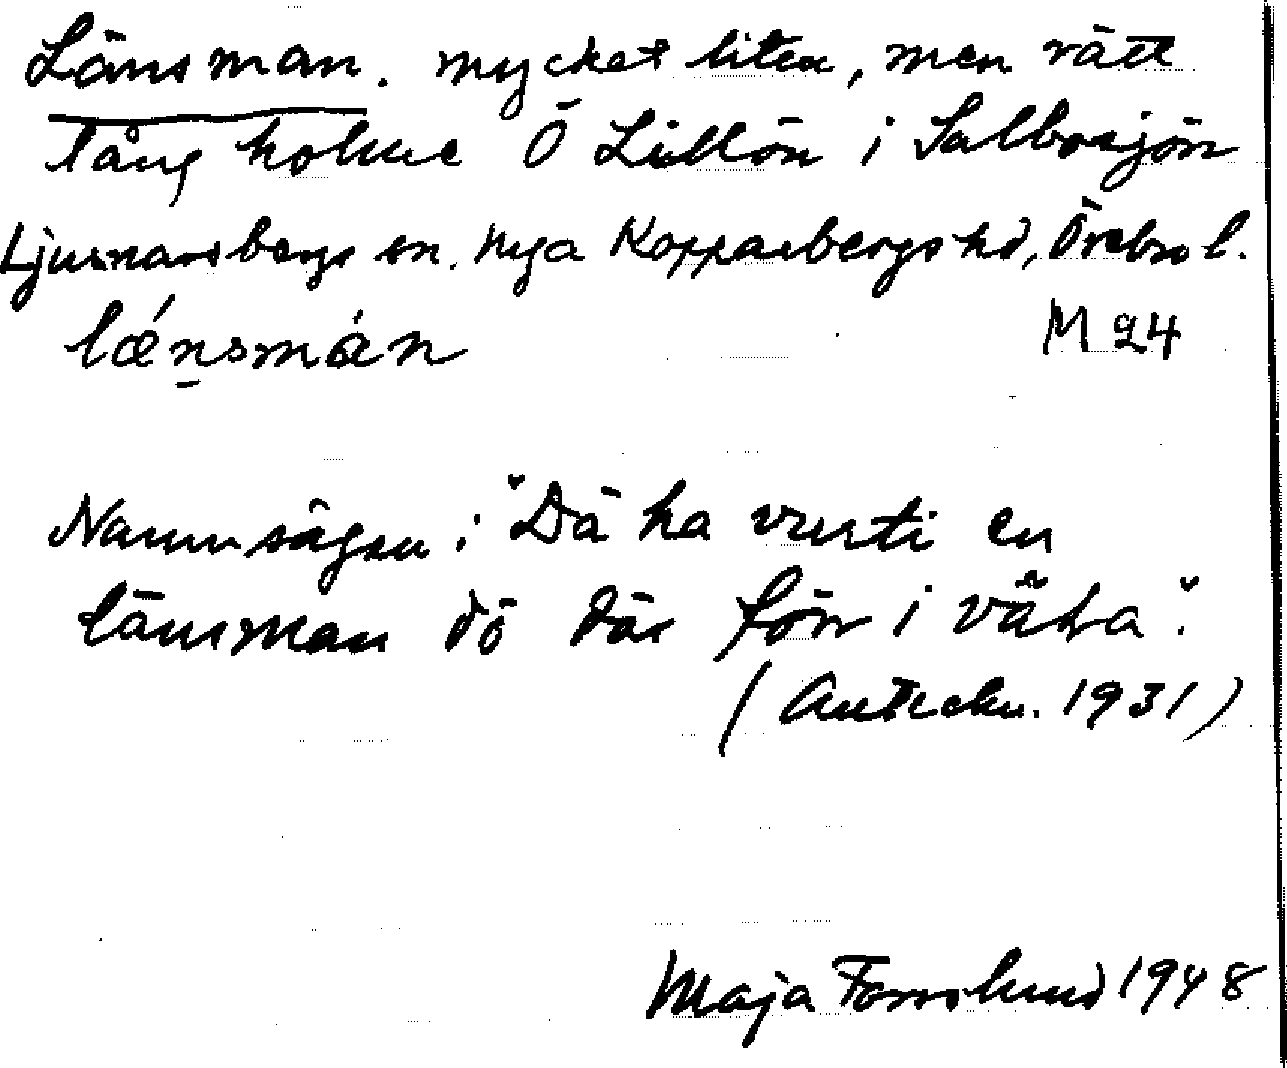 Länsman. mycket liten, men rätt
lång holme Ö Lillön i Salbosjön
Ljusnarsbergs sn. Nya Kopparbergs hd, Örebro l.
lǽn̠smán M 24
Namnsägen: "Dä ha vurti en
länsman dö där förr i väha".
(Anteckn. 1931)
Maja Forsslund 1948